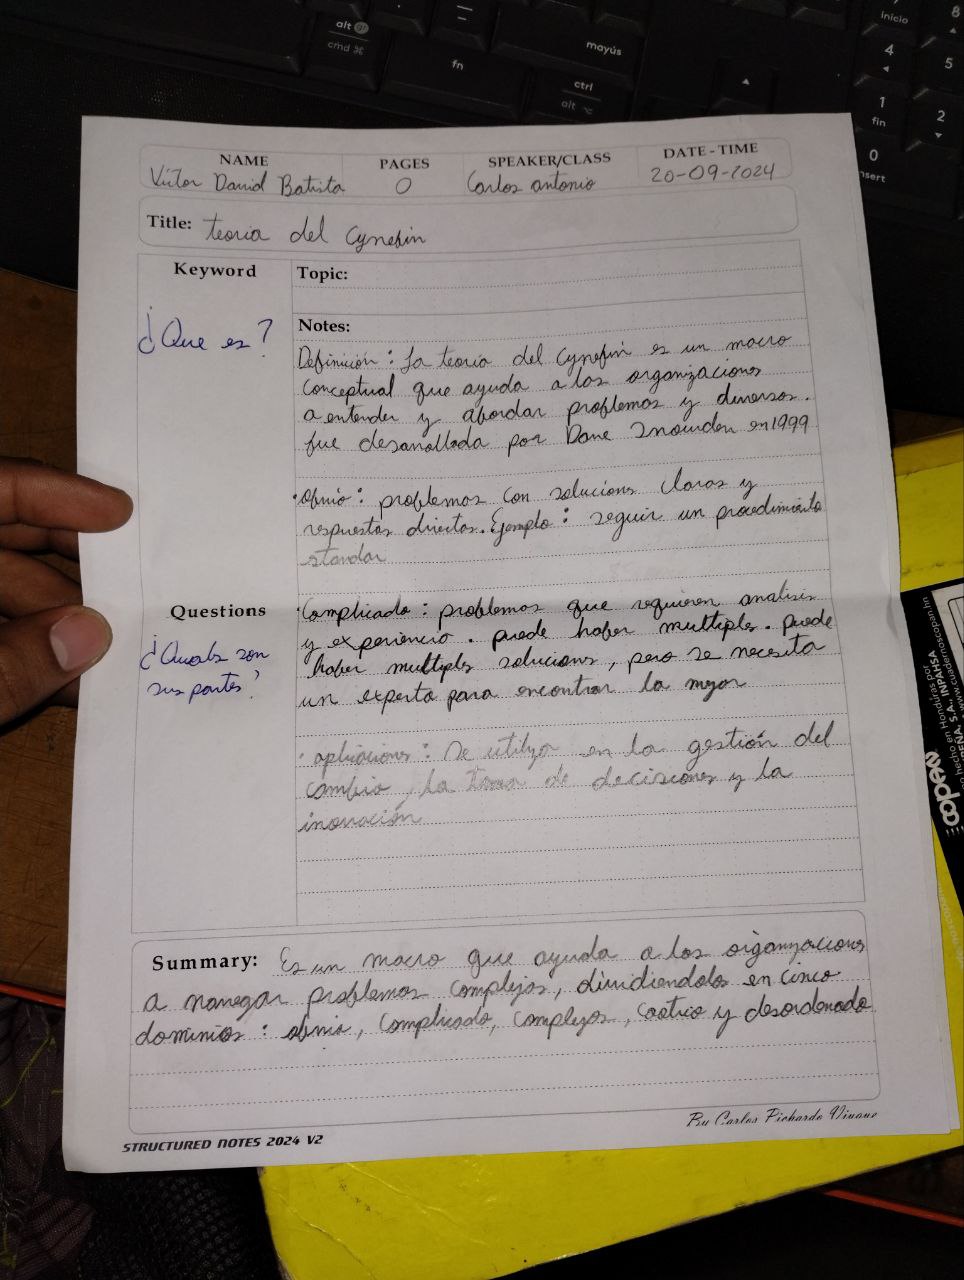 NAME
PAGES
SPEAKER/CLASS
DATE - TIME
Víctor David Batista
0
Carlos antonio
20-09-2024
Title: teoria del Cynefin
Keyword
Topic:
¿Que es?
Notes:
Definición: La teoria del Cynefin es un macro
conceptual que ayuda a las organizaciones
a entender y abordar problemas y diversos.
fue desarrollada por Dave Snowden en 1999
• obvio: problemas con solucions claras y
respuestas directas. Ejemplo: seguir un procedimiento
standar
Questions
¿Cuals son
sus partes?
• Complicado: problemas que requieren analisis
y experiencia. puede haber multiples. puede
haber multiples solucions, pero se necesita
un experto para encontrar la mejor
• aplicaciones: Se utiliza en la gestión del
cambio, la toma de decisiones y la
inovación
Summary: Es un macro que ayuda a las organizacions
a navegar problemas complejos, dividiendolos en cinco
dominios: obvio, complicado, complejos, caotico y desordenado
By Carlos Pichardo Viuque
STRUCTURED NOTES 2024 V2
alt
cmd
fn
mayús
ctrl
alt
inicio
8
4
5
1
fin
2
0
insert
copexa
hecho en Honduras por
S.A., INPAHSA
www.cuadernoscopan.hn